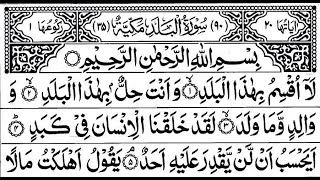 اٰيَاتُهَا ٢٠ (٩٠) سُوْرَةُ الْبَلَدِ مَكِّيَّةٌ (٣٥) رُكُوْعُهَا ١
بِسْمِ اللّٰهِ الرَّحْمٰنِ الرَّحِيْمِ
لَآ اُقْسِمُ بِهٰذَا الْبَلَدِ ۝١ وَاَنْتَ حِلٌّۢ بِهٰذَا الْبَلَدِ ۝٢ وَ
وَالِدٍ وَّمَا وَلَدَ ۝٣ لَقَدْ خَلَقْنَا الْاِنْسَانَ فِيْ كَبَدٍ ۝٤
اَيَحْسَبُ اَنْ لَّنْ يَّقْدِرَ عَلَيْهِ اَحَدٌ ۝٥ يَقُوْلُ اَهْلَكْتُ مَالًا